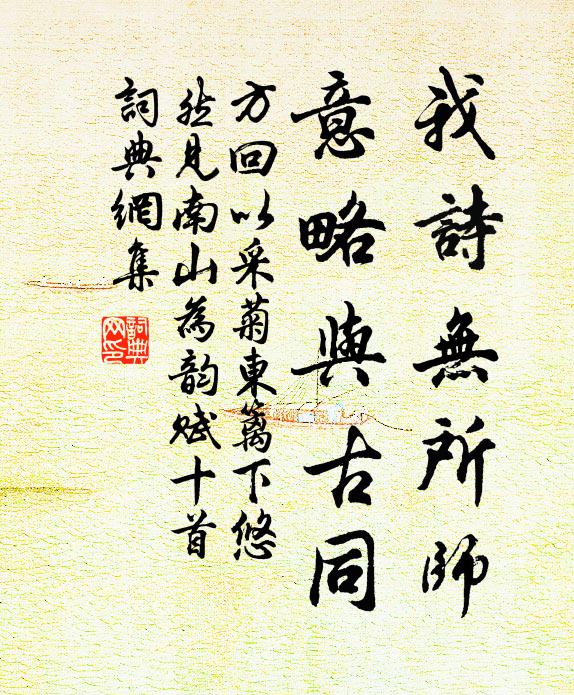 我詩無所師
意略與古同
方回以采菊東籬下悠
然見南山為韵賦十首
詞典網集
詞典网印